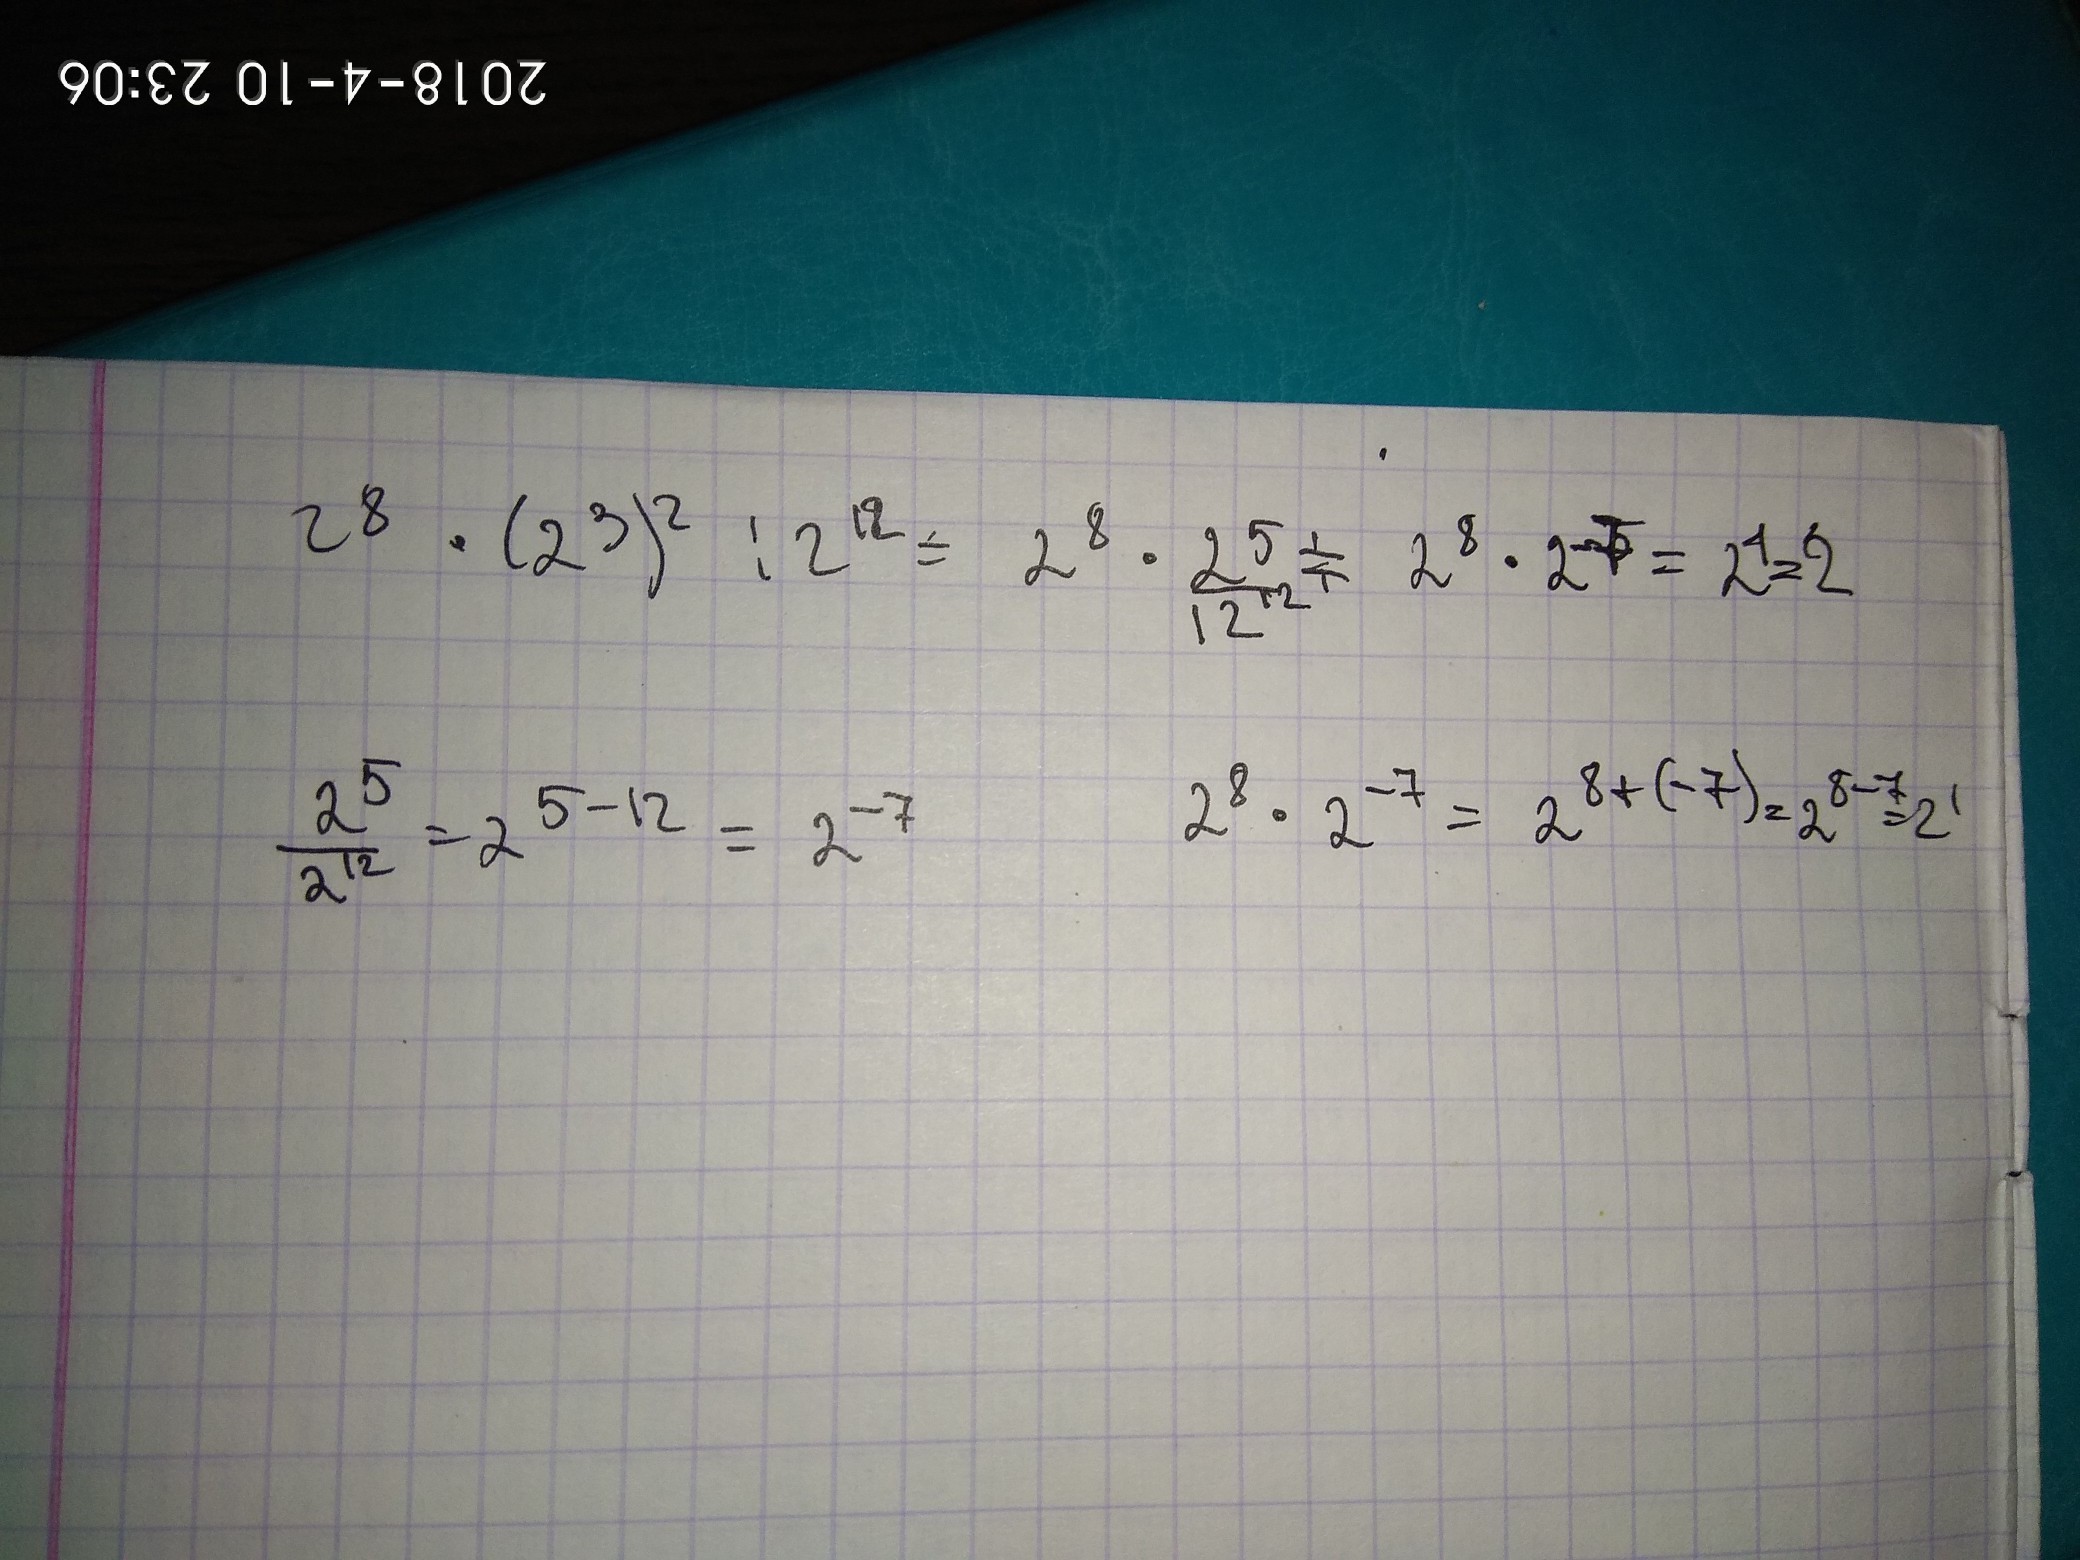 2018-4-10 23:06
2⁸ · (2³)² : 2¹² = 2⁸ · 2⁵/12¹² = 2⁸ · 2⁻⁷ = 2¹ = 2
2⁵/2¹² = 2⁵⁻¹² = 2⁻⁷
2⁸ · 2⁻⁷ = 2⁸⁺⁽⁻⁷⁾ = 2⁸⁻⁷ = 2¹